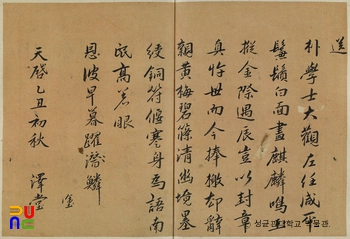 送
朴學士大觀左任咸平
鬢鬚白面畫麒麟鳴玉
摐金除過辰豈以封章
真忤世而今捧檄却辭
親黃梅碧篠清幽境墨
綬銅符偃蹇身爲語南
氓高著眼
恩波早暮躍潛鱗
天啓乙丑初秋 澤堂
성균관대학교 박물관